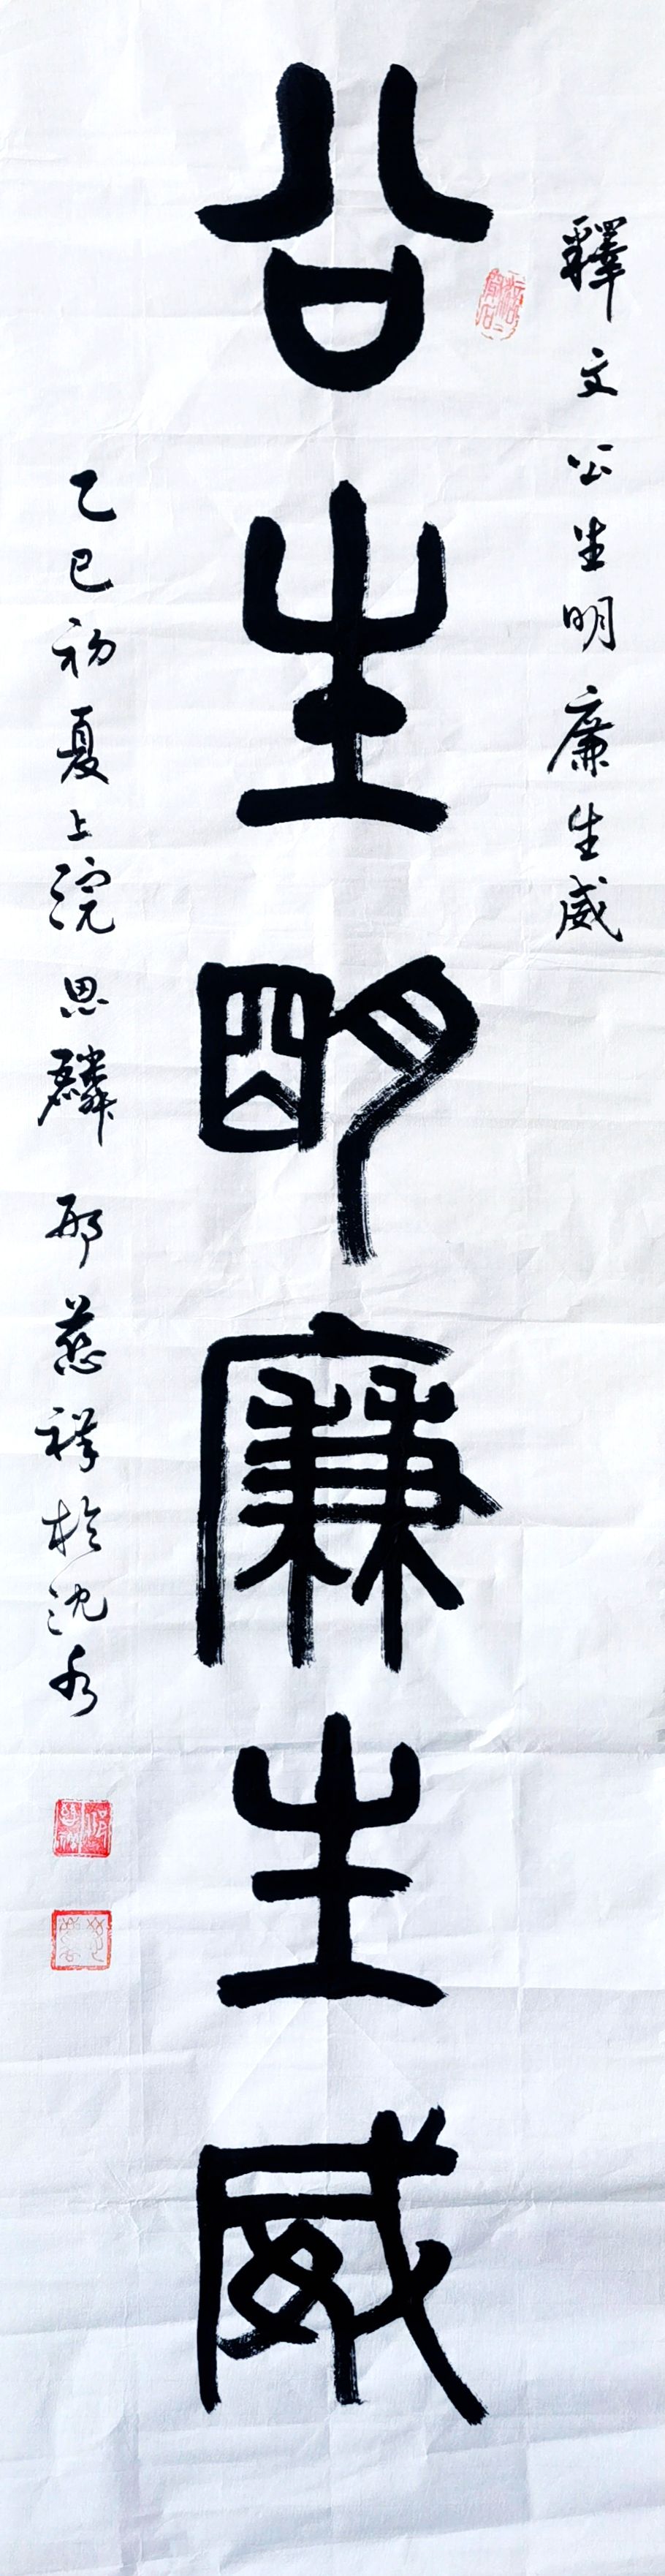 釋文公生明廉生威
公生明廉生威
乙巳初夏上浣思麟邢慈祥於沈水